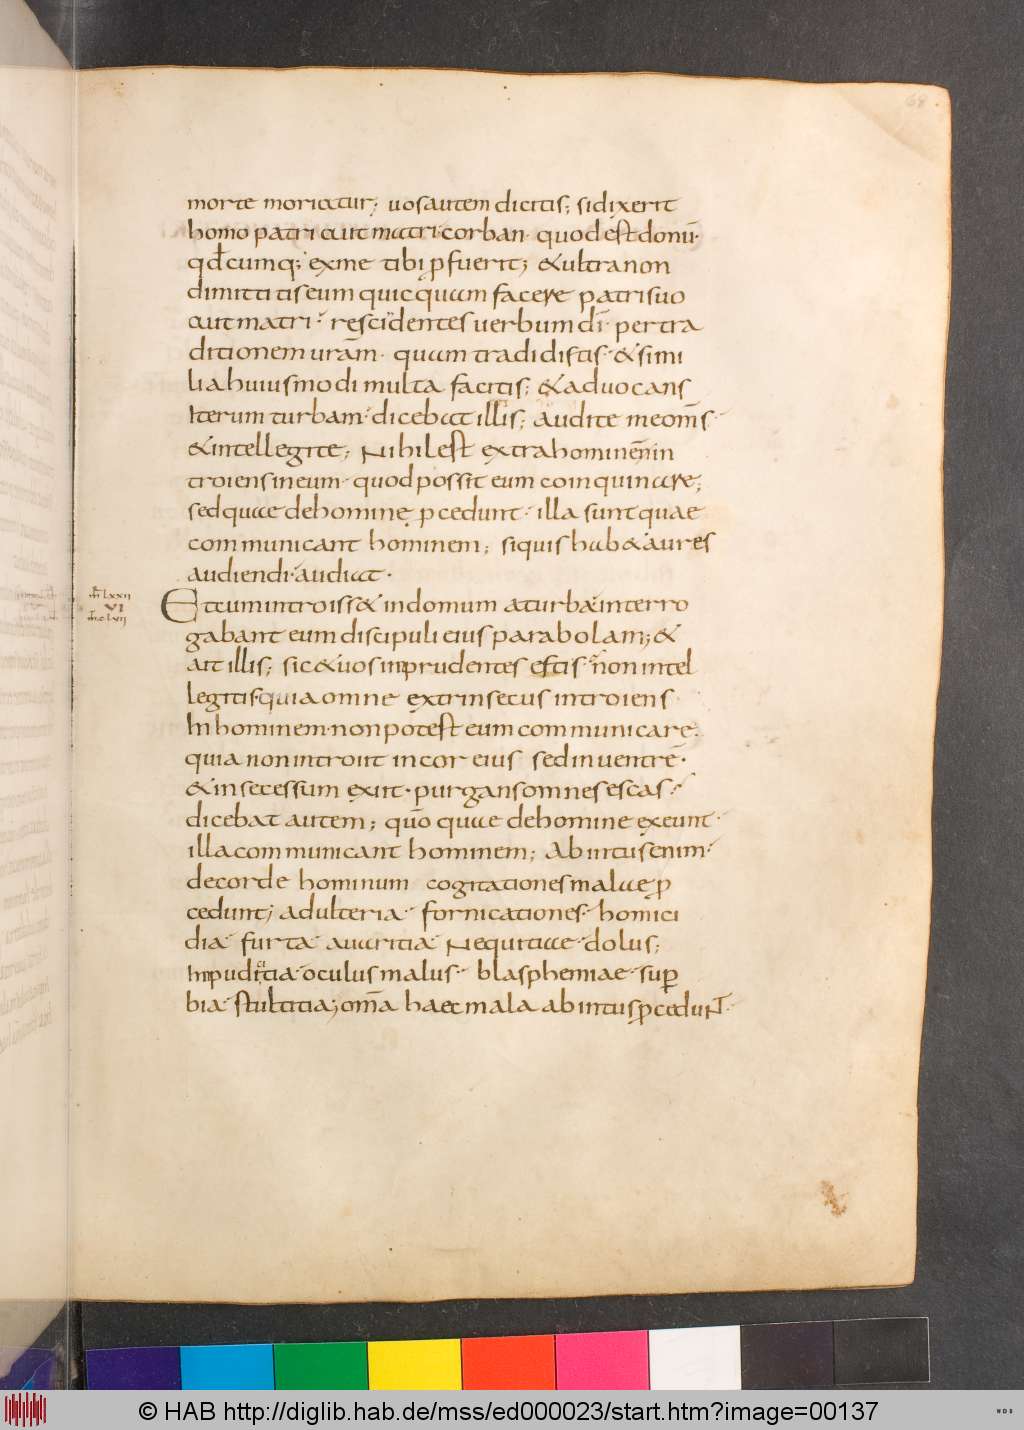 68
morte moriatur; uos autem dicitis; si dixerit
homo patri aut matri· corban· quod est donū·
qđcumq; ex me tibi ꝓfuerit; & ultra non
dimittitis eum quicquam facere patri suo
aut matri· rescidentes uerbum dī· per tra
ditionem urām· quam tradidistis· & simi
lia huiusmodi multa facitis; & aduocans
Iterum turbam· dicebat illis; audite me om̄s·
& intellegite; Nihil est extra hominem in
troiens in eum· quod possit eum coinquinare;
sed quae de homine ꝓcedunt· illa sunt quae
communicant hominem; siquis hab& aures
audiendi· audiat·
m̄ lxxii
VI
m̄ clvii
Et cum introiss& in domum a turba· interro
gabant eum discipuli eius parabolam; &
ait illis; sic & uos inprudentes estis· non intel
legitis quia omne extrinsecus introiens
In hominem· non potest eum communicare·
quia non introiit in cor eius sed in uentrē·
& in secessum exiit· purgans omnes escas·
dicebat autem; quō quae de homine exeunt·
illa communicant hominem; Ab intus enim·
de corde hominum cogitationes malae ꝓ
cedunt; adulteria· fornicationes· homici
dia· furta· auaritia· Nequitiae· dolus;
Impudicitia· oculus malus· blasphemiae· suꝑ
bia· stultitia; om̄a haec mala ab intus ꝓcedunt·
© HAB http://diglib.hab.de/mss/ed000023/start.htm?image=00137
WDB